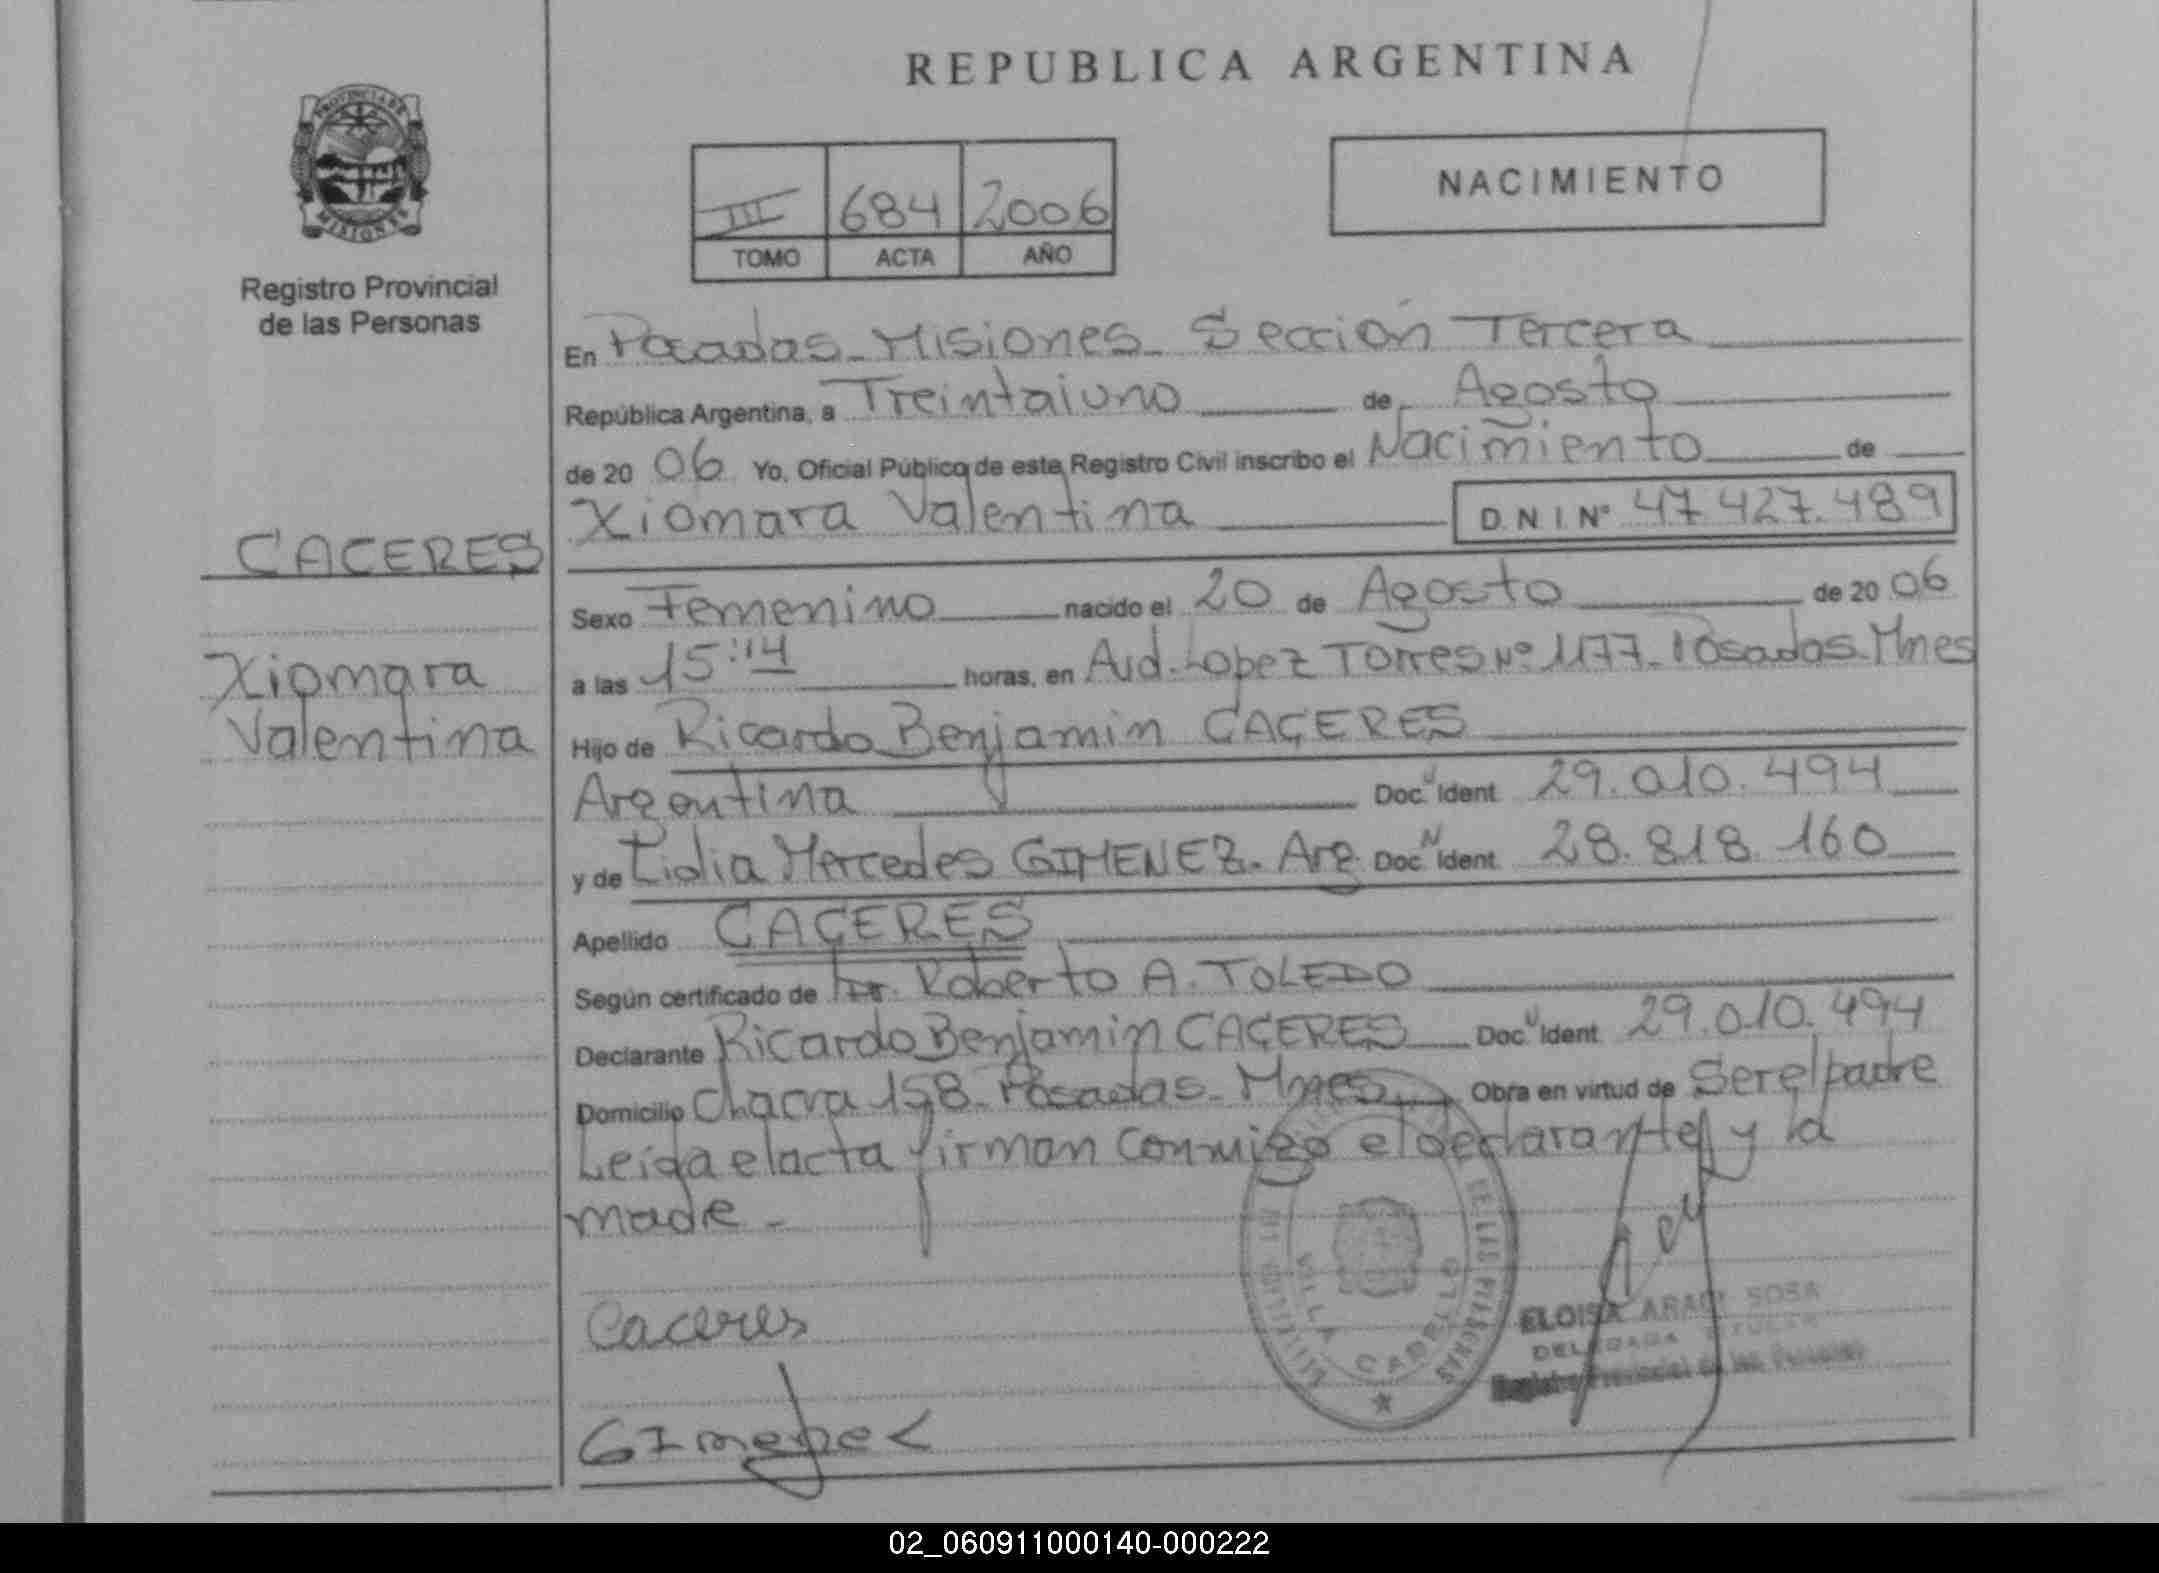 REPUBLICA ARGENTINA
PROVINCIA DE
MISIONES
Registro Provincial
de las Personas
III 684 2006
TOMO ACTA AÑO
NACIMIENTO
En Posadas - Misiones - Sección Tercera
República Argentina, a Treintaiuno de Agosto
de 20 06 Yo, Oficial Público de este Registro Civil inscribo el Nacimiento de
Xiomara Valentina D N I Nº 47.427.489
CACERES
Xiomara
Valentina
Sexo Femenino nacido el 20 de Agosto de 20 06
a las 15:14 horas, en Avd. Lopez Torres Nº 1177 - Posadas - Mnes
Hijo de Ricardo Benjamin CACERES
Argentina Doc. Ident. 29.010.494
y de Lidia Mercedes GIMENEZ. Arg. Doc. Ident. 28.818.160
Apellido CACERES
Según certificado de Dr. Roberto A. TOLEDO
Declarante Ricardo Benjamin CACERES Doc. Ident. 29.010.494
Domicilio Chacra 158 - Posadas - Mnes Obra en virtud de Ser el padre
Leida el acta firman conmigo el declarante y la
madre -
Caceres
GImenez
DE LAS PERSONAS
VILLA CABELLO
ELOISA ARACI SOSA
DELEGADA TITULAR
Registro Provincial de las Personas
02_060911000140-000222